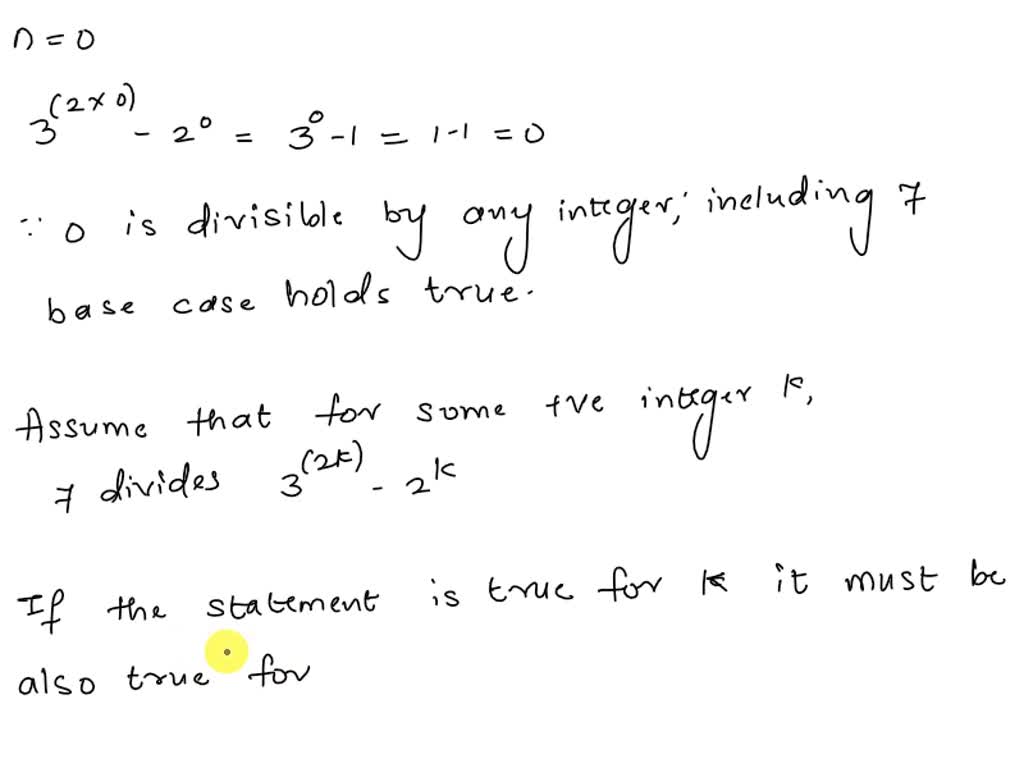 n = 0
3^(2×0) - 2^0 = 3^0 - 1 = 1-1 = 0
∵ 0 is divisible by any integer, including 7
base case holds true.
Assume that for some +ve integer k,
7 divides 3^(2k) - 2^k
If the statement is true for k it must be
also true for